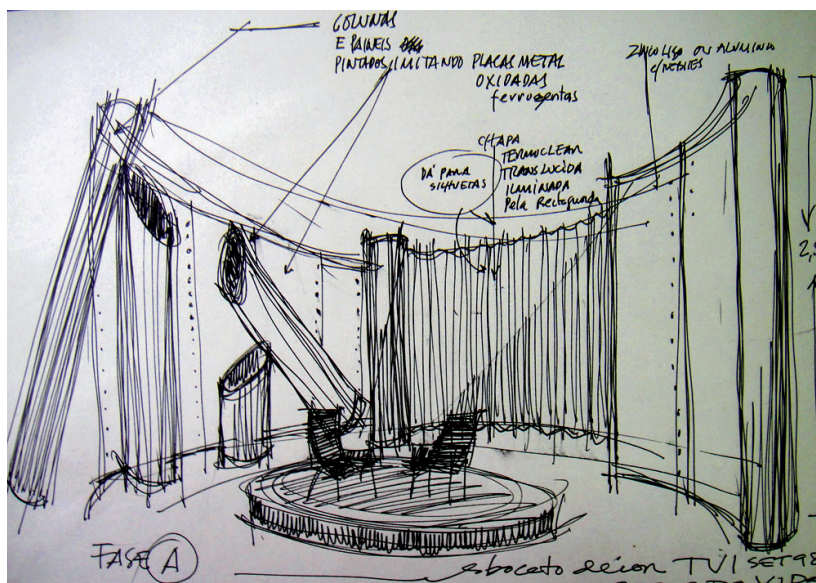 COLUNAS
E PAINEIS
PINTADOS IMITANDO PLACAS METAL
OXIDADAS
ferrugentas
ZINCO LISO OU ALUMINIO
C/REBITES
CHAPA
TERMOCLEAR
TRANSLUCIDA
ILUMINADA
Pela Rectaguarda
DÁ PARA
SILHUETAS
FASE A
esboceto décor TVI SET 98